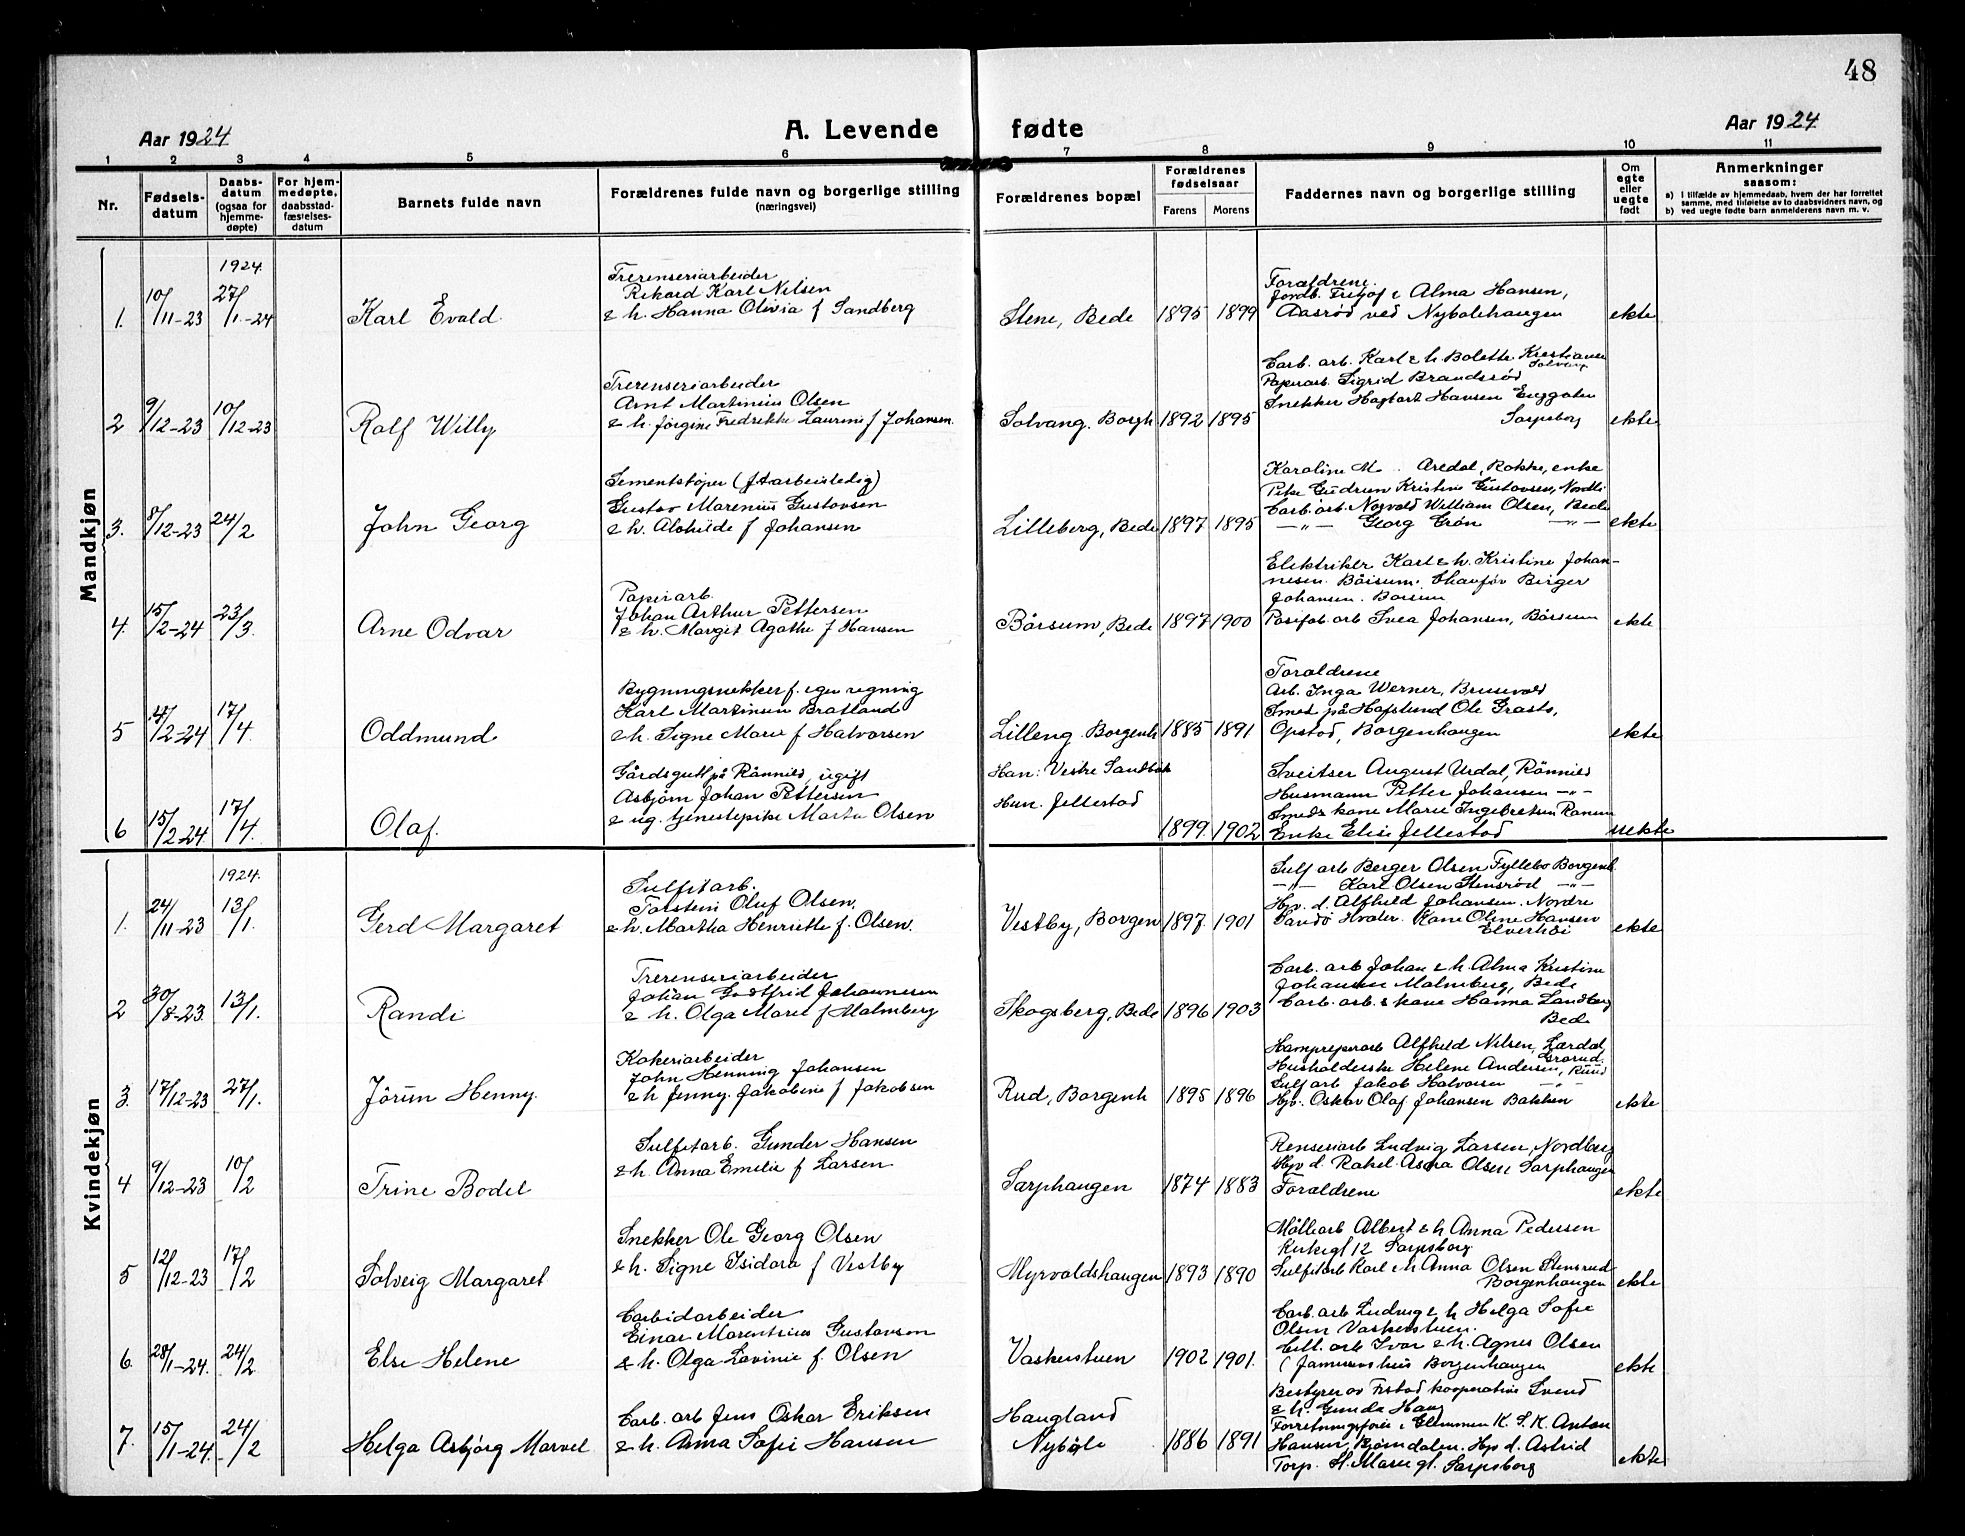 48
Aar 1924
A. Levende fødte
Aar 1924
1 2 3 4 5 6 7 8 9 10 11
Nr.
Fødsels-
datum
Daabs-
datum
(ogsaa for
hjemme-
døpte)
For hjem-
medøpte,
daabsstad-
fæstelses-
datum
Barnets fulde navn
Forældrenes fulde navn og borgerlige stilling
(næringsvei)
Forældrenes bopæl
Forældrenes
fødselsaar
Farens Morens
Faddernes navn og borgerlige stilling
Om
egte
eller
uegte
født
Anmerkninger
saasom:
a) i tilfælde av hjemmedaab, hvem der har forrettet
samme, med tilføielse av to daabsvidners navn, og
b) ved uegte fødte barn anmelderens navn m. v.
Mandkjøn
1.
10/11-23
1924.
27/1-24
Karl Evald
Trerenseriarbeider
Rikard Karl Nilsen
& h. Hanna Olivia f Sandberg
Stene, Bede
1895 1899
Forældrene.
Jordb. Fritjof & Alma Hansen,
Aasrød ved Nybølehaugen
ekte
2
9/12-23
10/12-23
Rolf Willy
Trerenseriarbeider
Arnt Martinius Olsen
& h. Jørgine Fredrikke Laurine f Johansen
Solvang, Borgh
1892 1895
Carb. arb. Karl & h. Bolette Kristiansen
Solvang
Papirarb. Sigrid Brandsrød
Snekker Hagbart Hansen Enggaten
Sarpsborg
ekte
3.
8/12-23
24/2
John Georg
Sementstøper (f t arbeisledig)
Gustav Marenius Gustavsen
& h. Alshilde f Johansen
Lilleberg, Bede
1897 1895
Karoline M. Aredal, Rokke, enke
Pike Gudrun Kristine Gustavsen, Nordli
Carb. arb. Norvald William Olsen, Bede
—"— Georg Grøn —"—
ekte
4.
15/2-24
23/3.
Arne Odvar
Papirarb.
Johan Arthur Pettersen
& h. Margit Agathe f Hansen
Børsum, Bede
1897 1900
Elektriker Karl & h. Kristine Johan-
nesen. Børsum. Chauffør Birger
Johansen. Børsum
Svea Johansen, Børsum
ekte
5
4/2-24
17/4.
Oddmund
Bygningsnekker f. egen regning
Karl Martinsen Bratland
& h. Signe Marie f Halvorsen
Lilleng Borgenh
1885 1891
Forældrene
Arb. Inga Werner, Brusevold
Smed på Hafslund Ole
Opstad, Borgenhaugen
ekte
6
15/2-24.
17/4.
Olaf.
Gårdsgutt på Rånnild, ugift
Asbjørn Johan Pettersen
& ug. tjenestepike Marta Olsen
Han: Vestre Sandbak
Hun. Jellestad
1899. 1902
Sveitser August Urdal, Rånnild
Husmann Petter Johansen —"—
Smeds kone Marie Ingebretsen
Enke Elise Jellestad
uekte
Kvindekjøn
1.
24/11-23
1924.
13/1.
Gerd Margaret
Sulfitarb.
Torstein Oluf Olsen.
& h. Martha Henriette f. Olsen.
Vestby, Borgen
1897. 1901
Sulf arb Berger Olsen Fyllebo Borgenh.
—"— Karl Olsen Stensrød —"—
Hpv. d. Alfhild Johansen. Nordre
Sandø Hvaler. Kone Oline Hansen
Elverhøi
ekte
2
30/8-23
13/1.
Randi
Trerenseriarbeider
Johan Godtfrid Johannesen
& h. Olga Marie f Malmberg
Skogsberg, Bede
1896 1903
Carb. arb Johan & h. Alma Kristine
Johansen Malmberg, Bede
Carb. arb. & kone Hanna Sandberg
Bede
3.
17/12-23
27/1.
Jörun Henny.
Kokeriarbeider
John Henning Johansen
& h Jenny. Jakobine f Jakobsen
Rud, Borgenh
1895 1896
Alfhild Nilsen, Lærdal,
Husholderske Helene Andersen, Ruud
Sulf arb Jakob Halvorsen —"—
Hpv. Oskar Olaf Johansen Bakken
ekte
4
9/12-23
10/2
Trine Bodil
Sulfitarb. Gunder Hansen
& h. Anna Emelie f Larsen
Sarphaugen
1874 1883
Renseriarb Ludvig Larsen, Nordberg
Hpv d. Rakel Asora Olsen Sarphaugen
Forældrene
ekte
5
12/12-23
17/2
Solveig Margaret
Snekker Ole Georg Olsen
& h. Signe Isidora f Vestby
Myrvoldshaugen
1893 1890
Möllearb Albert & h Anna Pedersen
Kirkegt 12 Sarpsborg
Sulfitarb Karl & h Anna Olsen Stensrud
Borgenhaugen
ekte
6.
28/1-24.
24/2.
Else Helene
Carbidarbeider
Einar Marentzius Gustavsen
& h. Olga Lovinie f. Olsen
Vaskerstuen
1902 1901.
Carb. arb Ludvig & h Helga Sofie
Olsen Vaskerstuen.
Cell. arb Ivar & h. Agnes Olsen
Borgenhaugen
ekte
7.
15/1-24.
24/2
Helga Asbjørg Marvel
Carb. arb Jens Oskar Eriksen
& h. Anna Sofie Hansen
Haugland
Nybøle
1886 1891
Bestyrer av kooperative Svend
& h. Gunda Haug
Forretningsfører i Glemmen K. S. K. Anton
Hansen, Bjørndalen. Hpv d. Astrid
Torp. St. Marie gt. Sarpsborg
ekte